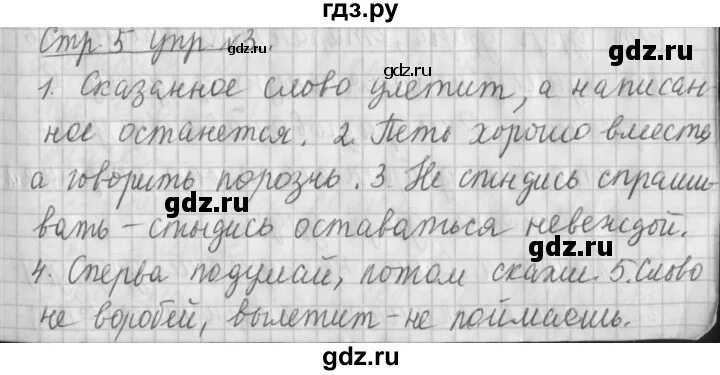 гдз.ру
Стр 5 упр №3.
gdz.ru
gdz.ru
1. Сказанное слово улетит, а написан-
ное останется. 2. Петь хорошо вместе,
а говорить порознь. 3. Не стыдись спраши-
gdz.ru
вать – стыдись оставаться невеждой.
gdz.ru
4. Сперва подумай, потом скажи. 5. Слово
не воробей, вылетит – не поймаешь.
gdz.ru
gdz.ru
gdz.ru